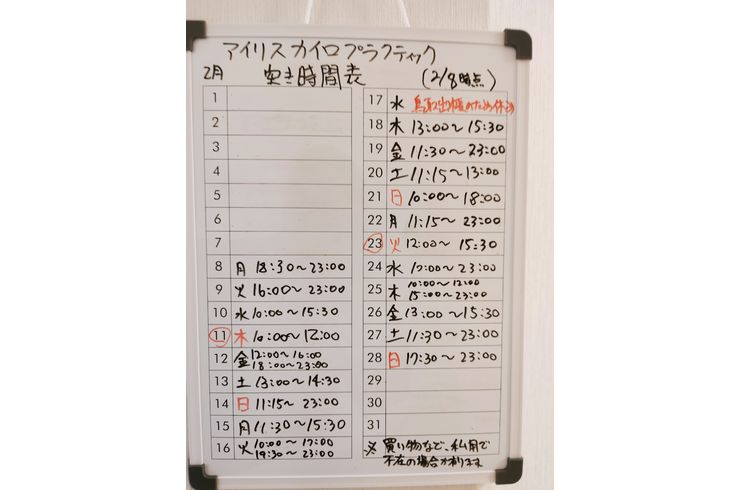 アイリスカイロプラクティック
2月 空き時間表 (2/8時点)
1
2
3
4
5
6
7
8 月 18:30〜23:00
9 火 16:00〜23:00
10 水 10:00〜15:30
11 木 10:00〜12:00
12 金 12:00〜16:00
18:00〜23:00
13 土 13:00〜14:30
14 日 11:15〜23:00
15 月 11:30〜15:30
16 火 10:00〜17:00
19:30〜23:00
17 水 鳥取出張のため休み
18 木 13:00〜15:30
19 金 11:30〜23:00
20 土 11:15〜13:00
21 日 10:00〜18:00
22 月 11:15〜23:00
23 火 12:00〜15:30
24 水 17:00〜23:00
25 木 10:00〜12:00
15:00〜23:00
26 金 13:00〜15:30
27 土 11:30〜23:00
28 日 17:30〜23:00
29
30
31
※ 買い物など、私用で
不在の場合が有ります